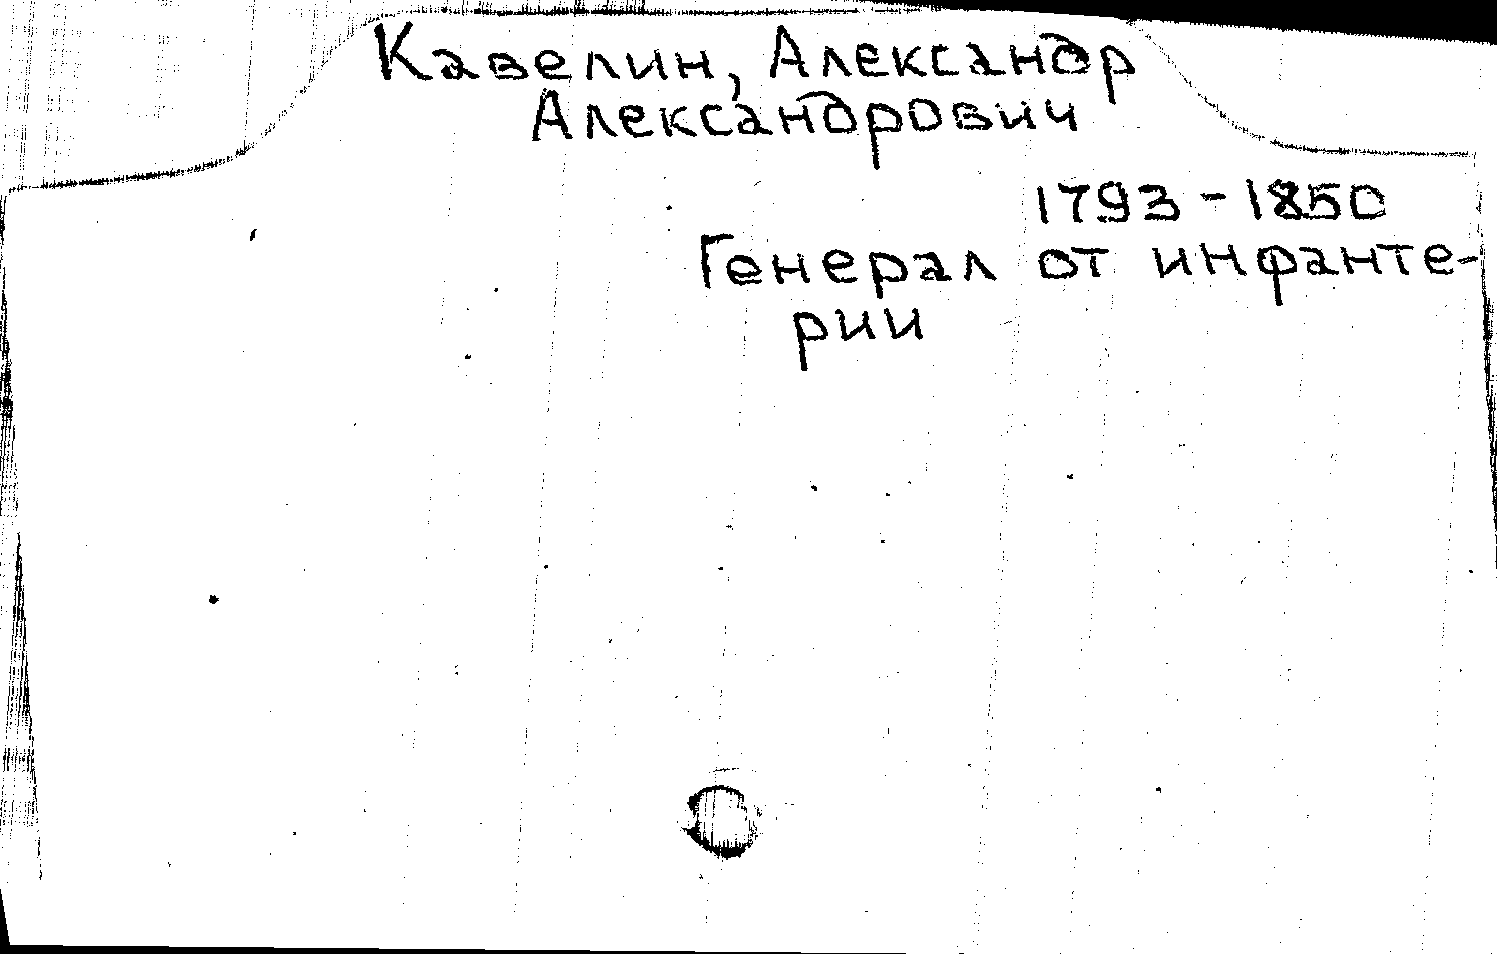 Кавелин, Александр
Александрович
1793-1850
Генерал от инфанте-
рии